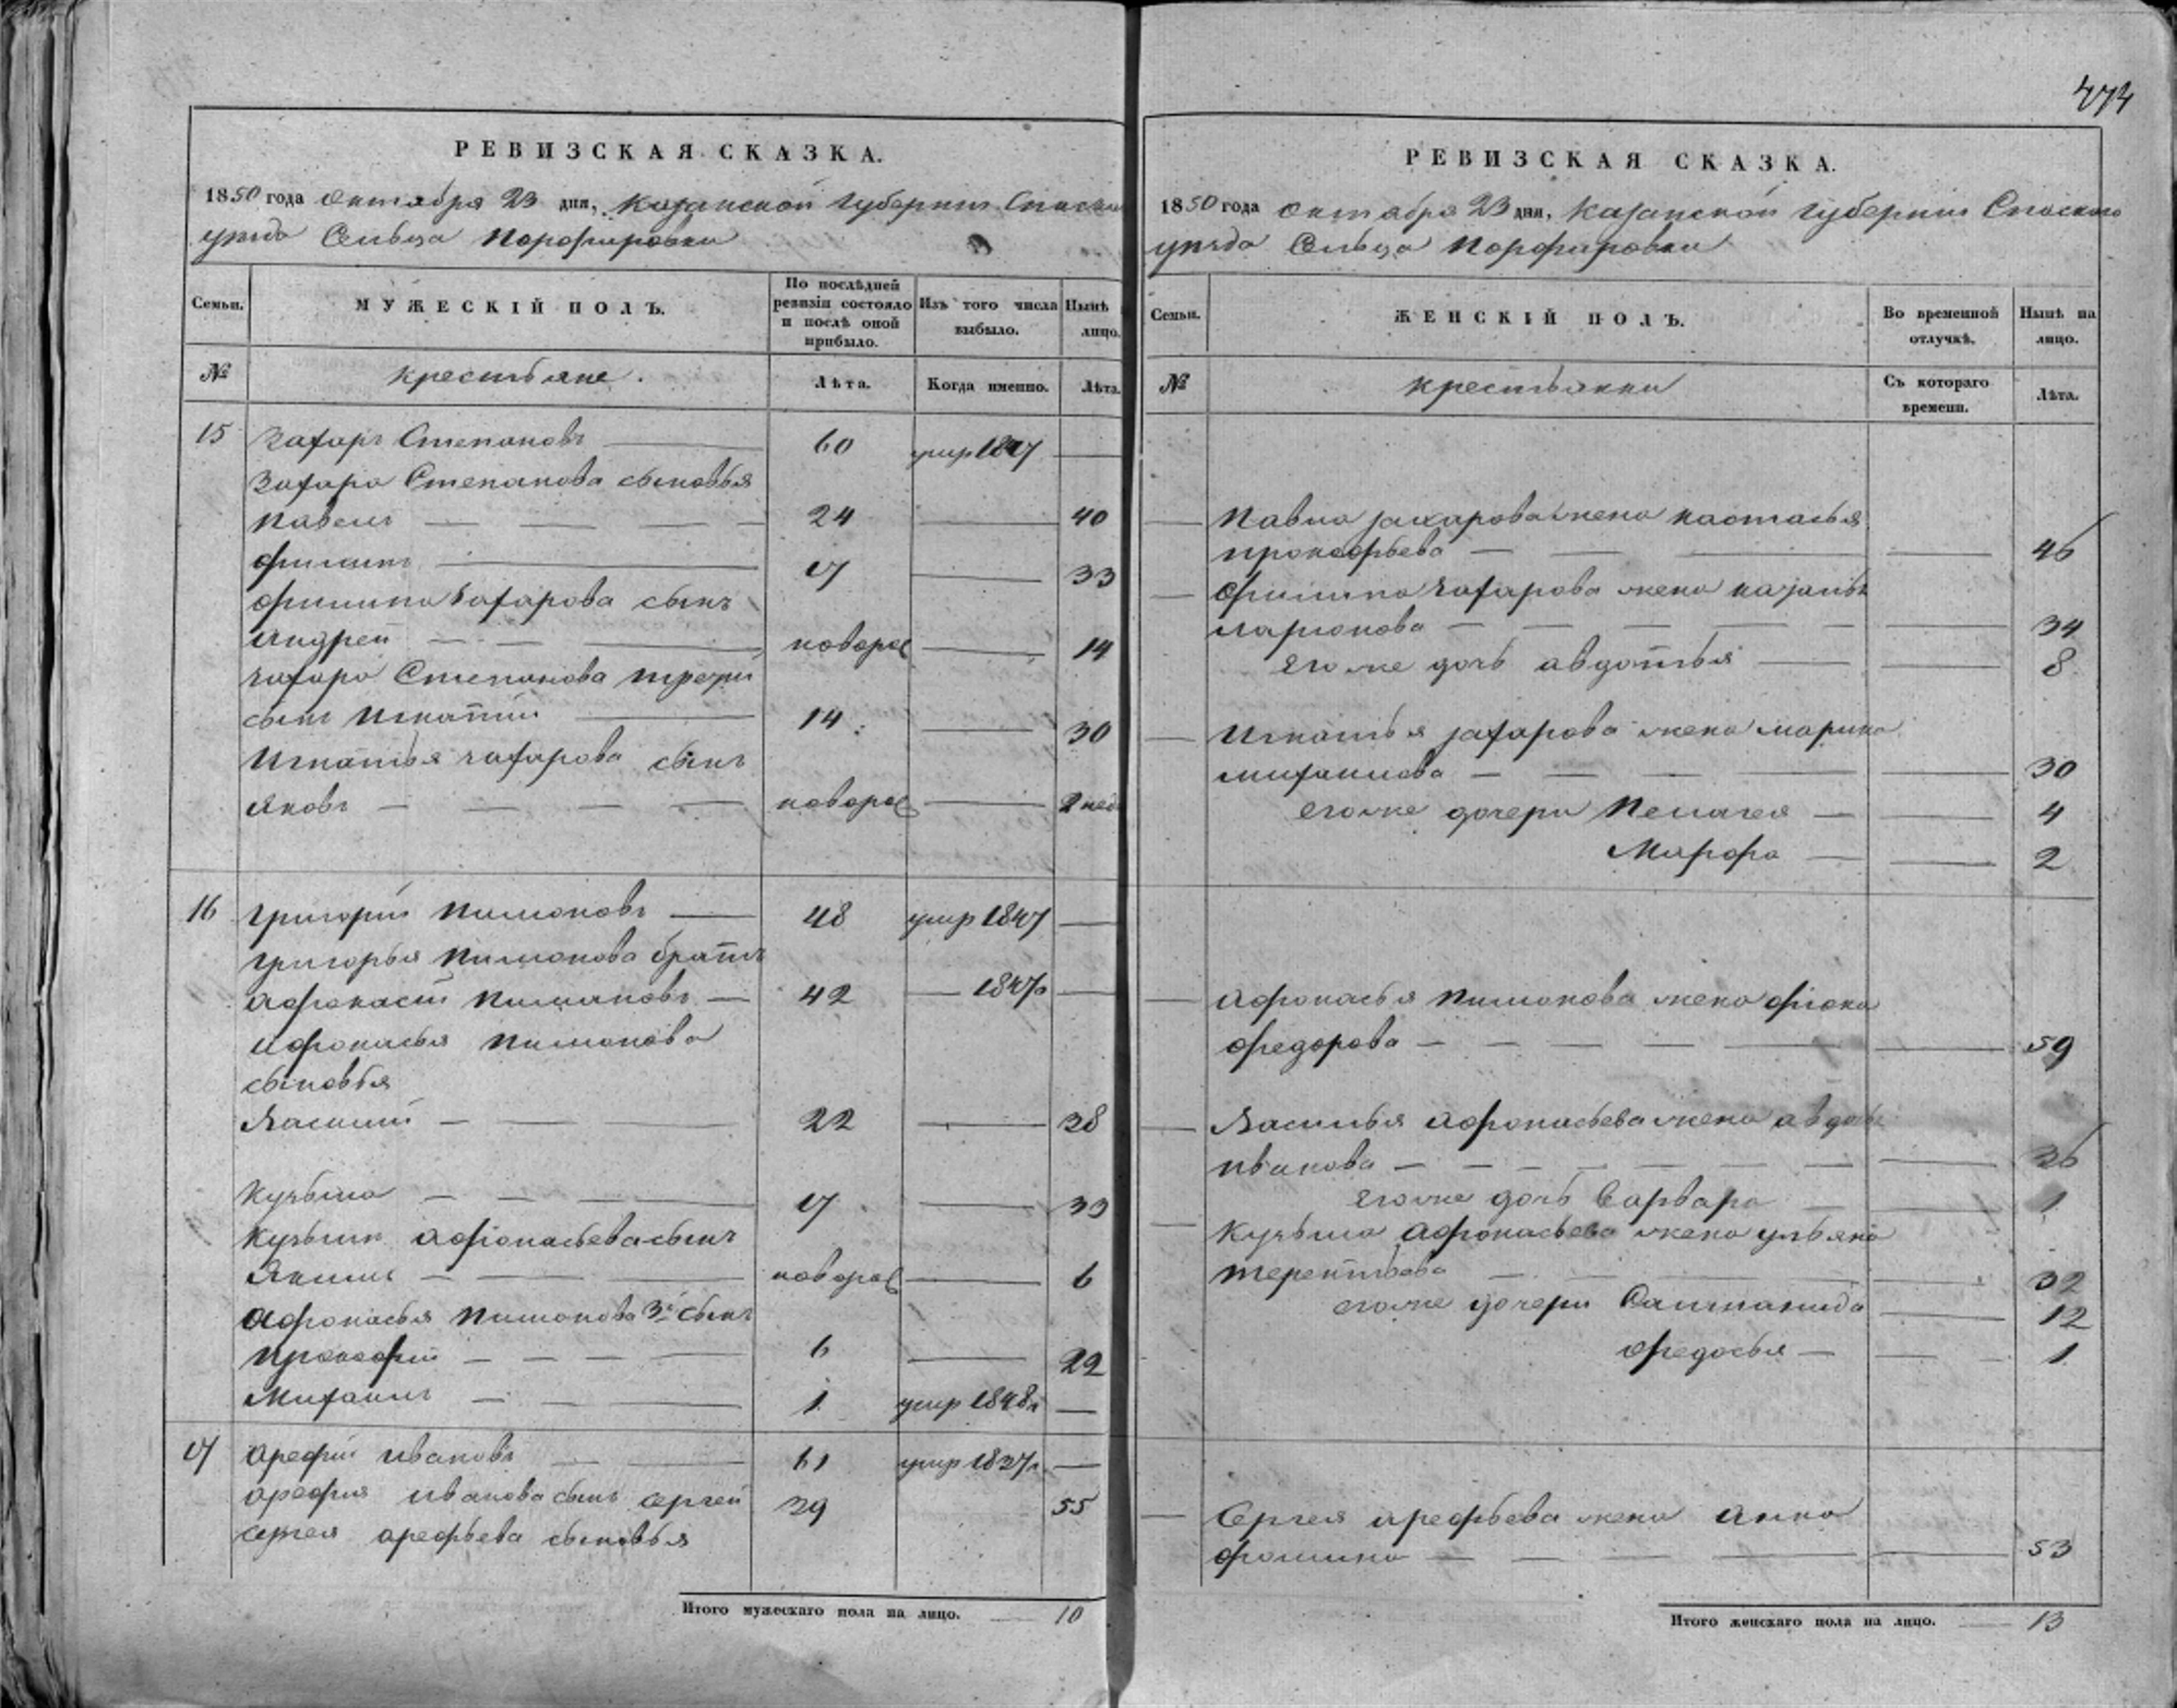 474
РЕВИЗСКАЯ СКАЗКА.
1850 года октября 23 дня, Казанской губернии Спаскаго
уезда Сельца Порфировки
Семьи. МУЖЕСКІЙ ПОЛЪ. По послѣдней ревизіи состояло и послѣ оной прибыло. Изъ того числа выбыло. Нынѣ лицо.
№ крестьяне. Лѣта. Когда именно. Лѣта.
15 Захаръ Степановъ 60 умр 1847
Захара Степанова сыновья
Павелъ 24 40
Филипъ 17 33
Филипа Захарова сынъ
Андрей новорос 14
Захара Степанова трети
сынъ Игнатій 14 30
Игнатья Захарова сынъ
Яковъ новорос 2 нед
16 Григорій Пимоновъ 48 умр 1847
Григорья Пимонова братъ
Афонасій Пимановъ 42 1847г
Афонасья Пимонова
сыновья
Василий 22 38
Кузьма 17 33
Кузьми Афонасьева сынъ
Якимъ новорос 6
Афонасья Пимонова 3й сынъ
Прокофій 6 22
Михаилъ 1 умр 1848г
17 Арефій Ивановъ 61 умр 1837г
Арефия Иванова сынъ Сергей 39 55
Сергея Арефьева сыновья
Итого мужескаго пола на лицо. 10
РЕВИЗСКАЯ СКАЗКА.
1850 года октября 23 дня, Казанской губернии Спаского
уезда Сельца Порфировки
Семьи. ЖЕНСКІЙ ПОЛЪ. Во временной отлучкѣ. Нынѣ на лицо.
№ крестьянки Съ котораго времени. Лѣта.
Павла Захарова жена Настасья
Прокофьева 46
Филипа Захарова жена
Ларионова 34
его же дочь Авдотья 8
Игнатья Захарова жена Марина
Михаилова 30
его же дочери Пелагея 4
Марфа 2
Афонасья Пимонова жена Фіона
Федорова 59
Василья Афонасьева жена Авдотья
Иванова 36
его же дочь Варвара 1
Кузьма Афонасьева жена Ульяна
Терентьева 32
его же дочери 12
Федосья 1
Сергея Арефьева жена Анна
Фомина 53
Итого женскаго пола на лицо. 13